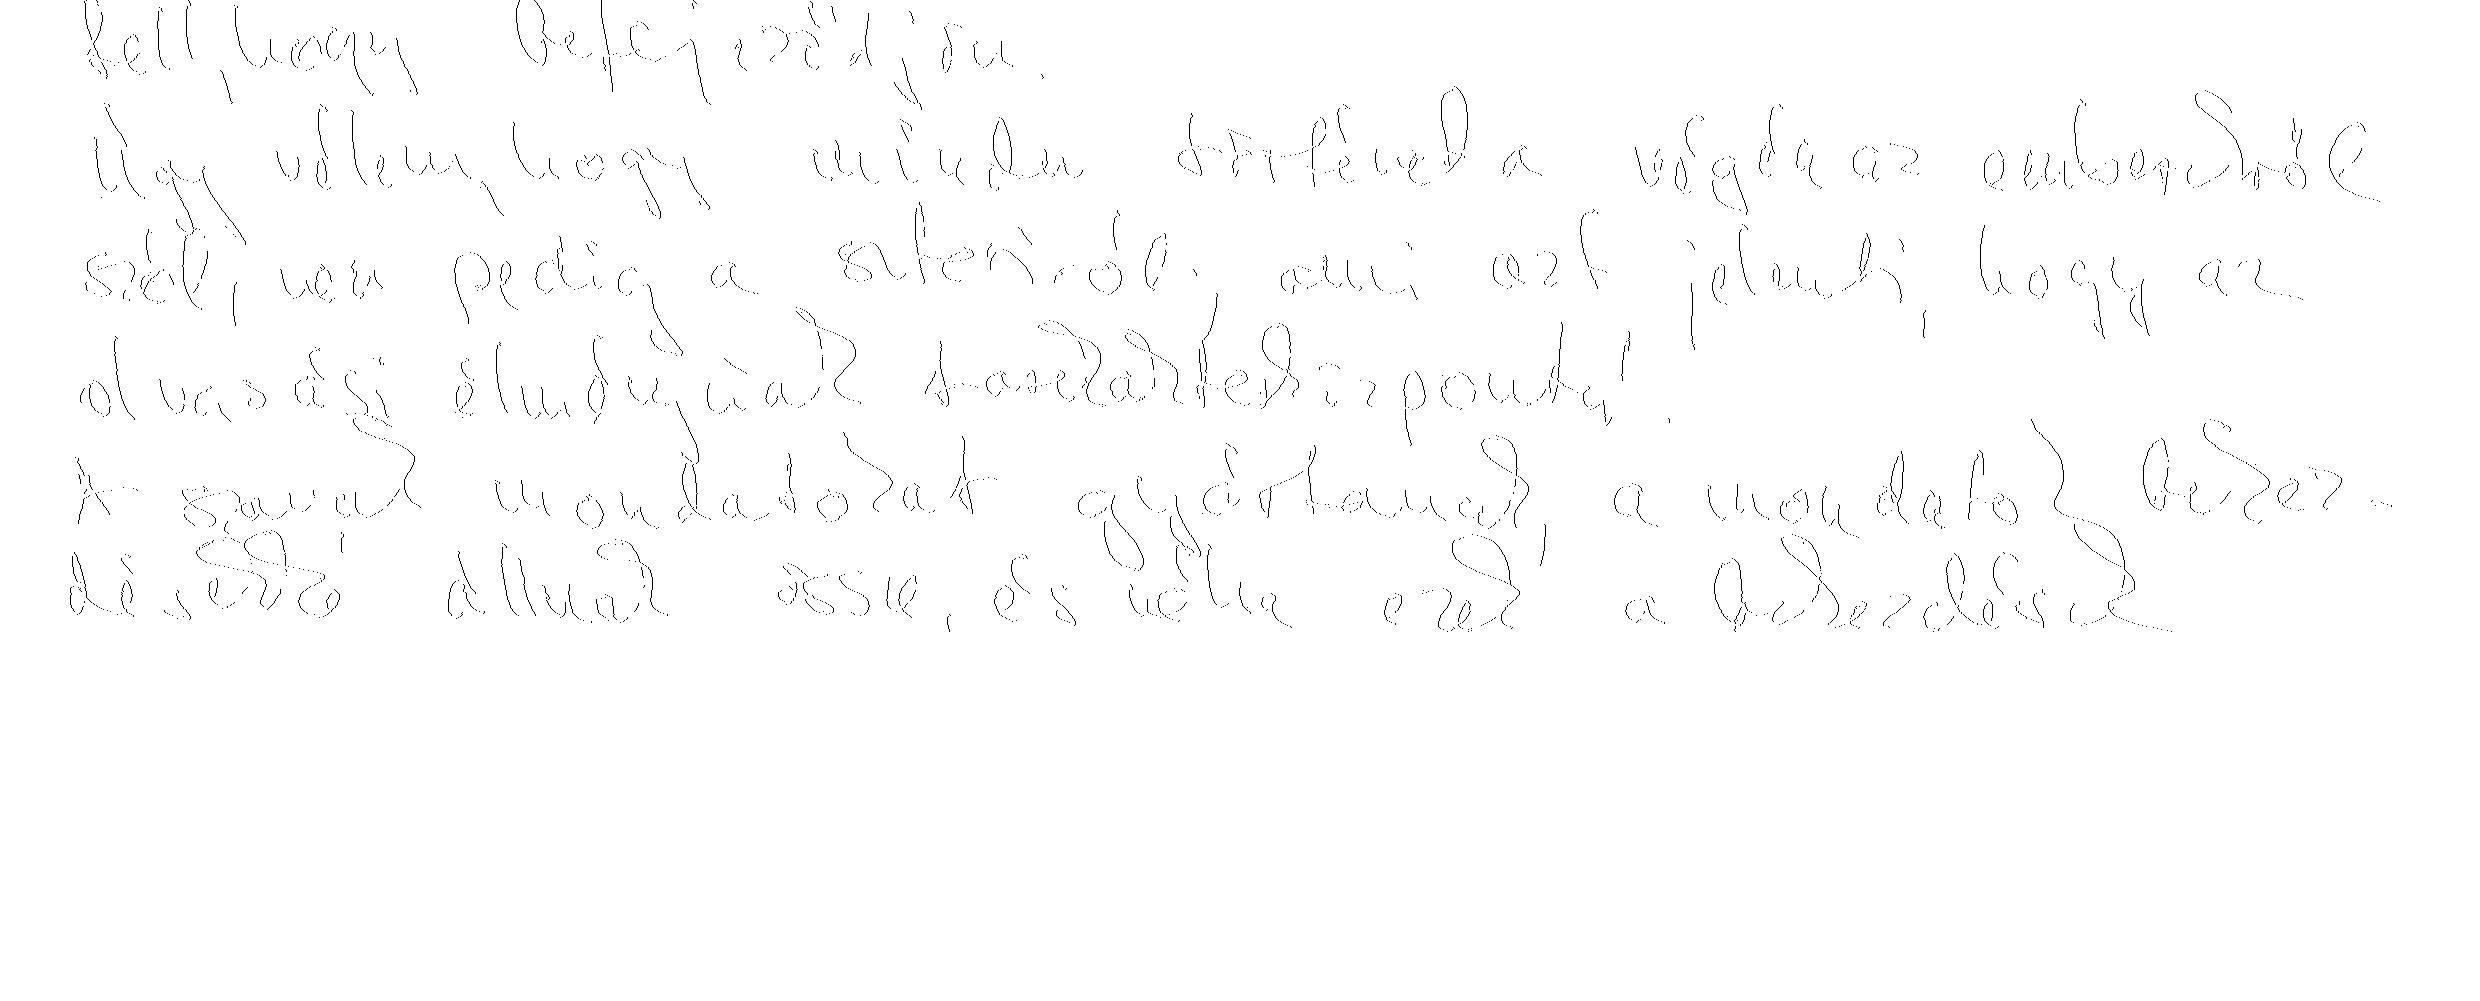 kell, hogy befejeződjön.
Úgy vélem, hogy minden történet a végén az emberekről
szól, nem pedig a sztoriról, ami azt jelenti, hogy az
olvasási élményünk tanszékközpontú.
A szavak mondatokat alkotnak, a mondatok bekez-
désekké állnak össze, és néha ezek a bekezdések